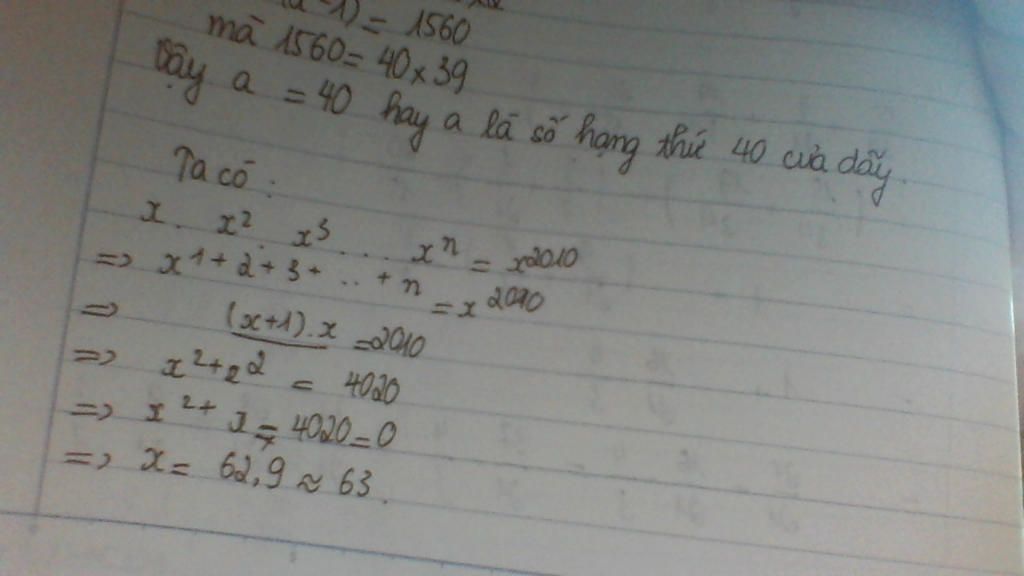 (a-1) = 1560
mà 1560 = 40 x 39
Vậy a = 40 hay a là số hạng thứ 40 của dãy.
Ta có :
x . x² . x³ ... xⁿ = x²⁰¹⁰
=> x¹⁺²⁺³⁺ ... ⁺ⁿ = x²⁰¹⁰
=> (x+1).x = 2010
2
=> x² + x = 4020
=> x² + x - 4020 = 0
=> x = 62,9 ≈ 63.